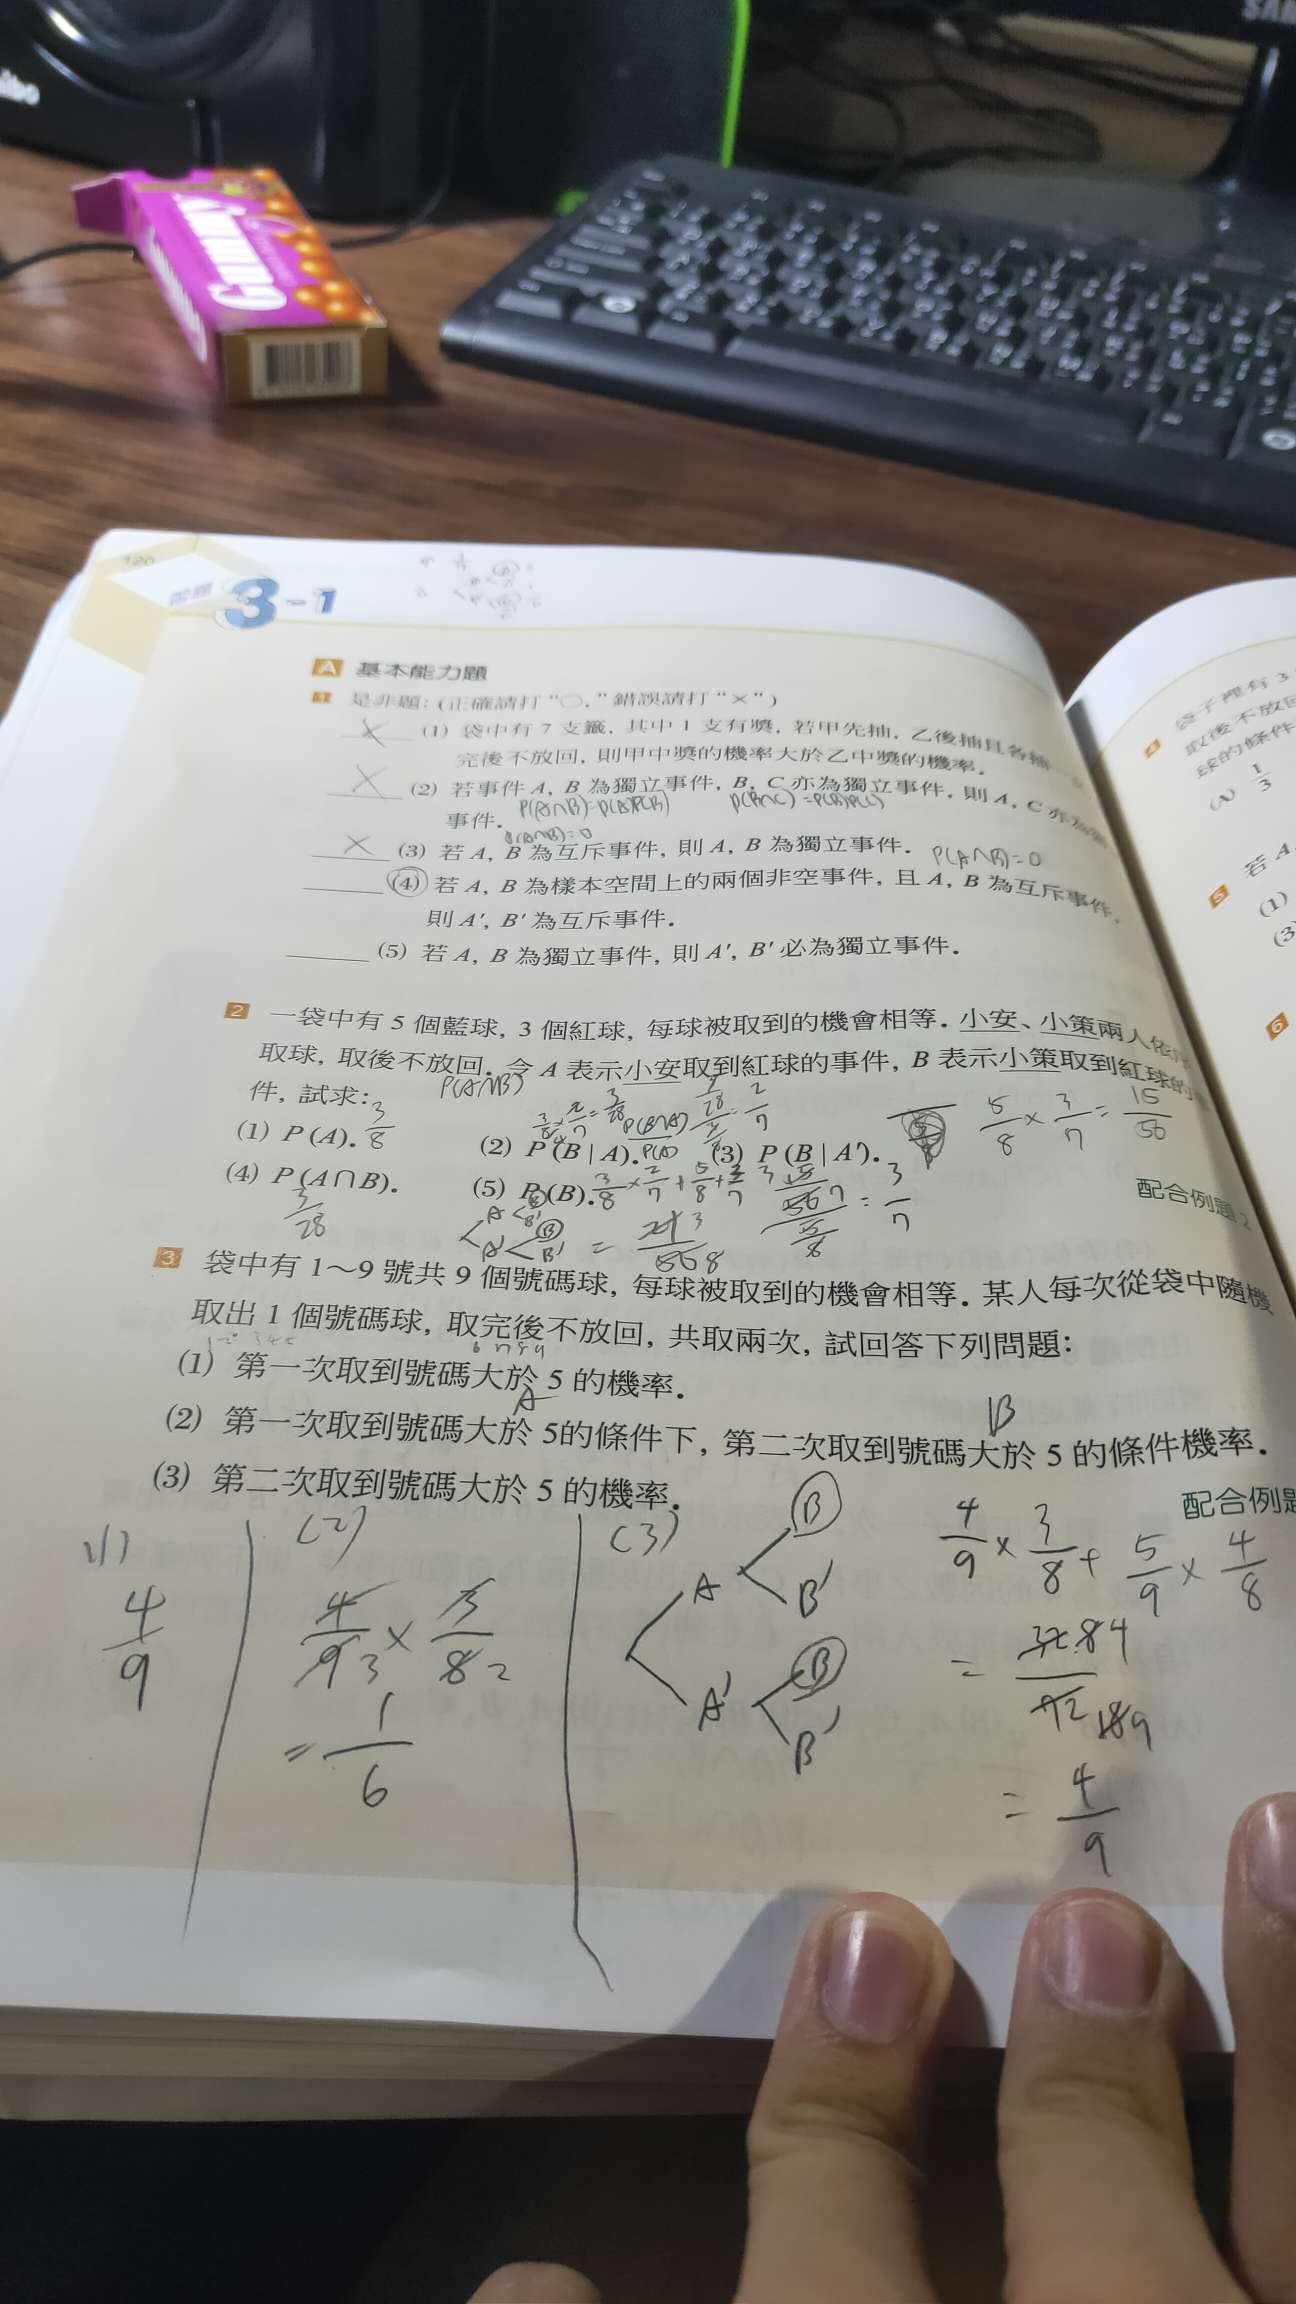 SAM
Gummy
120
習題 3-1
A 基本能力題
1 是非題：(正確請打“○，”錯誤請打“×”)
× (1) 袋中有 7 支籤，其中 1 支有獎，若甲先抽，乙後抽且各抽
完後不放回，則甲中獎的機率大於乙中獎的機率．
× (2) 若事件 A，B 為獨立事件，B，C 亦為獨立事件，則 A，C 亦為
事件． P(A∩B)=P(A)P(B) P(B∩C)=P(B)P(C)
P(A∩B)=0
× (3) 若 A，B 為互斥事件，則 A，B 為獨立事件． P(A∩B)=0
(4) 若 A，B 為樣本空間上的兩個非空事件，且 A，B 為互斥事件，
則 A′，B′ 為互斥事件．
(5) 若 A，B 為獨立事件，則 A′，B′ 必為獨立事件．
2 一袋中有 5 個藍球，3 個紅球，每球被取到的機會相等．小安、小策兩人依
取球，取後不放回．令 A 表示小安取到紅球的事件，B 表示小策取到紅球的
件，試求： P(A∩B)
(1) P(A). 3/8 (2) P(B|A). 3/8 × 2/7 = 3/28 P(B∩A)/P(A) = 2/7 (3) P(B|A′). 5/8 × 3/7 = 15/56
(4) P(A∩B). 3/28 (5) P(B). 3/8 × 2/7 + 5/8 + 3/7 = 3/7
A B B′ A′ B B′ = 21/56 3 8
配合例題 2
3 袋中有 1～9 號共 9 個號碼球，每球被取到的機會相等．某人每次從袋中隨機
取出 1 個號碼球，取完後不放回，共取兩次，試回答下列問題：
6 7 8 9
(1) 第一次取到號碼大於 5 的機率．
A B
(2) 第一次取到號碼大於 5的條件下，第二次取到號碼大於 5 的條件機率．
(3) 第二次取到號碼大於 5 的機率．
配合例題
(1)
4/9
(2)
4/9 3 × 3/8 2
= 1/6
(3)
A B B′
A′ B B′
4/9 × 3/8 + 5/9 × 4/8
= 4/9
4 袋子裡有 3
取後不放回
球的條件
(A) 1/3
5 若 A
(1)
(3)
6